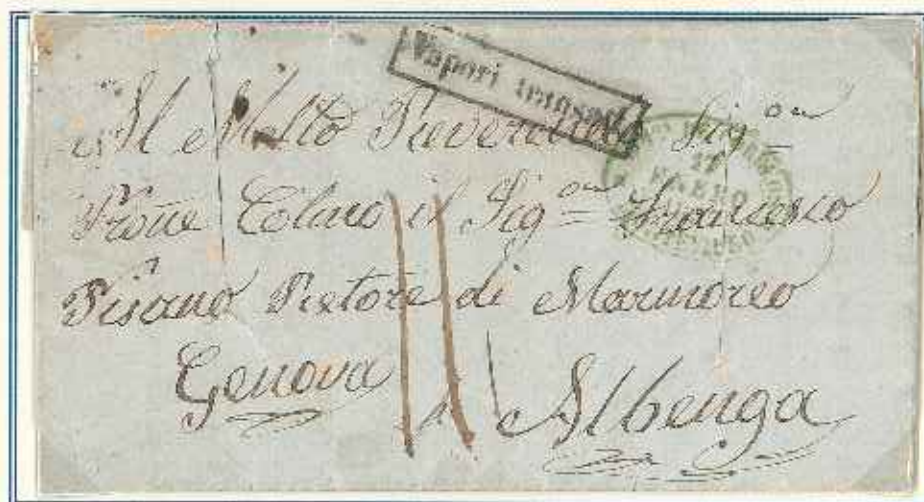 Vapori transatl
Al Molto Reverendo Sig.or
Prone Colmo il Sig.or Francesco
Pisano Rettore di Marmoreo
Genova Albenga
27
ENERO